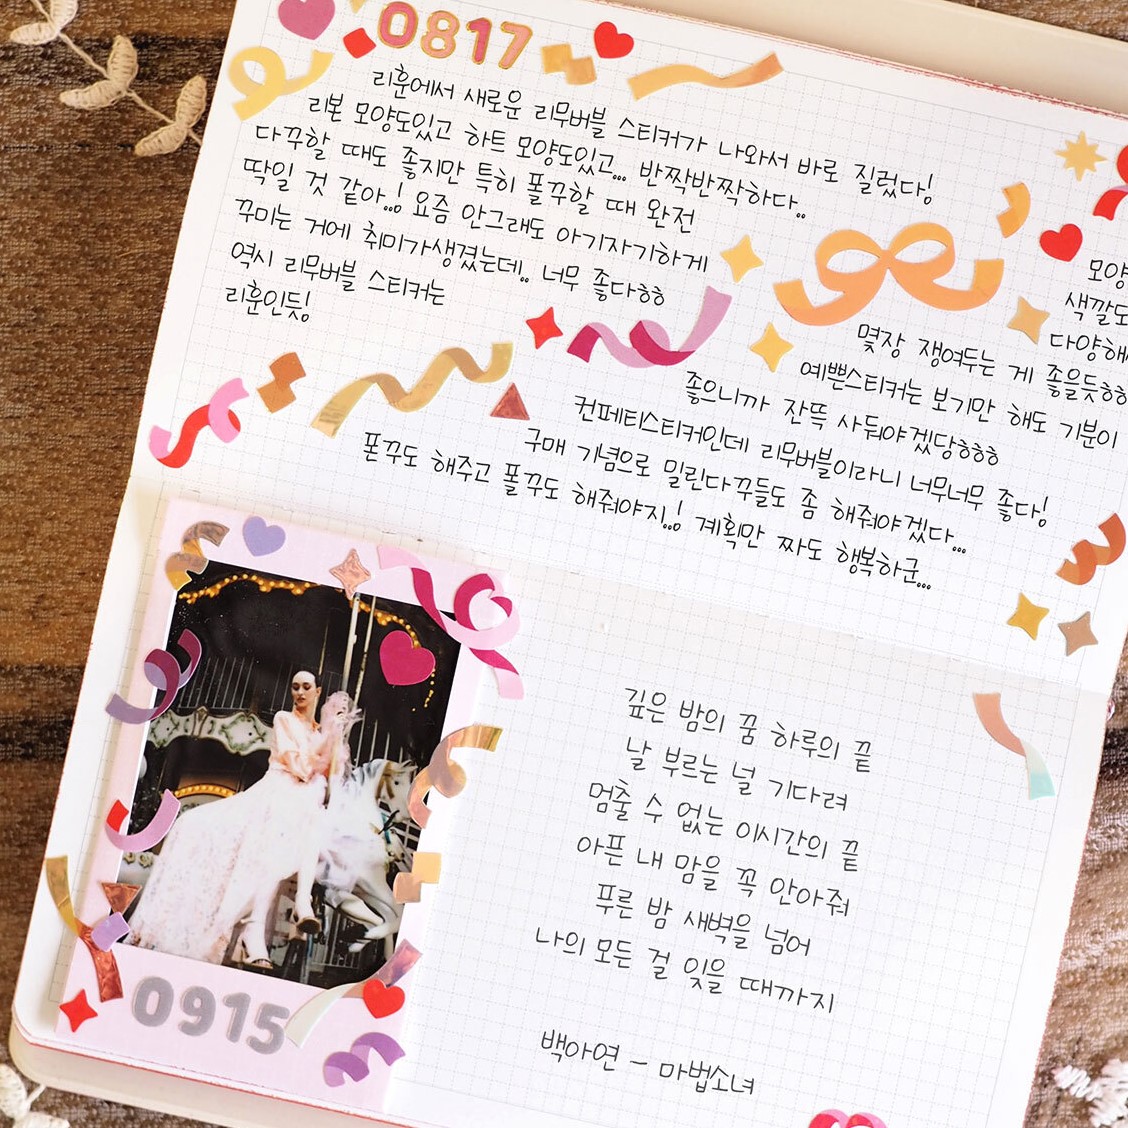 0817
리훈에서 새로운 리무버블 스티커가 나와서 바로 질렀다!
리본 모양도있고 하트 모양도있고... 반짝반짝하다..
다꾸할 때도 좋지만 특히 폴꾸할 때 완전
딱일 것 같아..! 요즘 안그래도 아기자기하게
꾸미는 거에 취미가생겼는데.. 너무 좋다ㅎㅎ
역시 리무버블 스티커는
리훈인듯!
모양
색깔도
다양해
몇장 쟁여두는 게 좋을듯ㅎㅎ
예쁜스티커는 보기만 해도 기분이
좋으니까 잔뜩 사둬야겠당ㅎㅎㅎ
컨페티스티커인데 리무버블이라니 너무너무 좋다!
구매 기념으로 밀린다꾸들도 좀 해줘야겠다...
폰꾸도 해주고 폴꾸도 해줘야지..! 계획만 짜도 행복하군...
0915
깊은 밤의 꿈 하루의 끝
날 부르는 널 기다려
멈출 수 없는 이시간의 끝
아픈 내 맘을 꼭 안아줘
푸른 밤 새벽을 넘어
나의 모든 걸 잊을 때까지
백아연 - 마법소녀